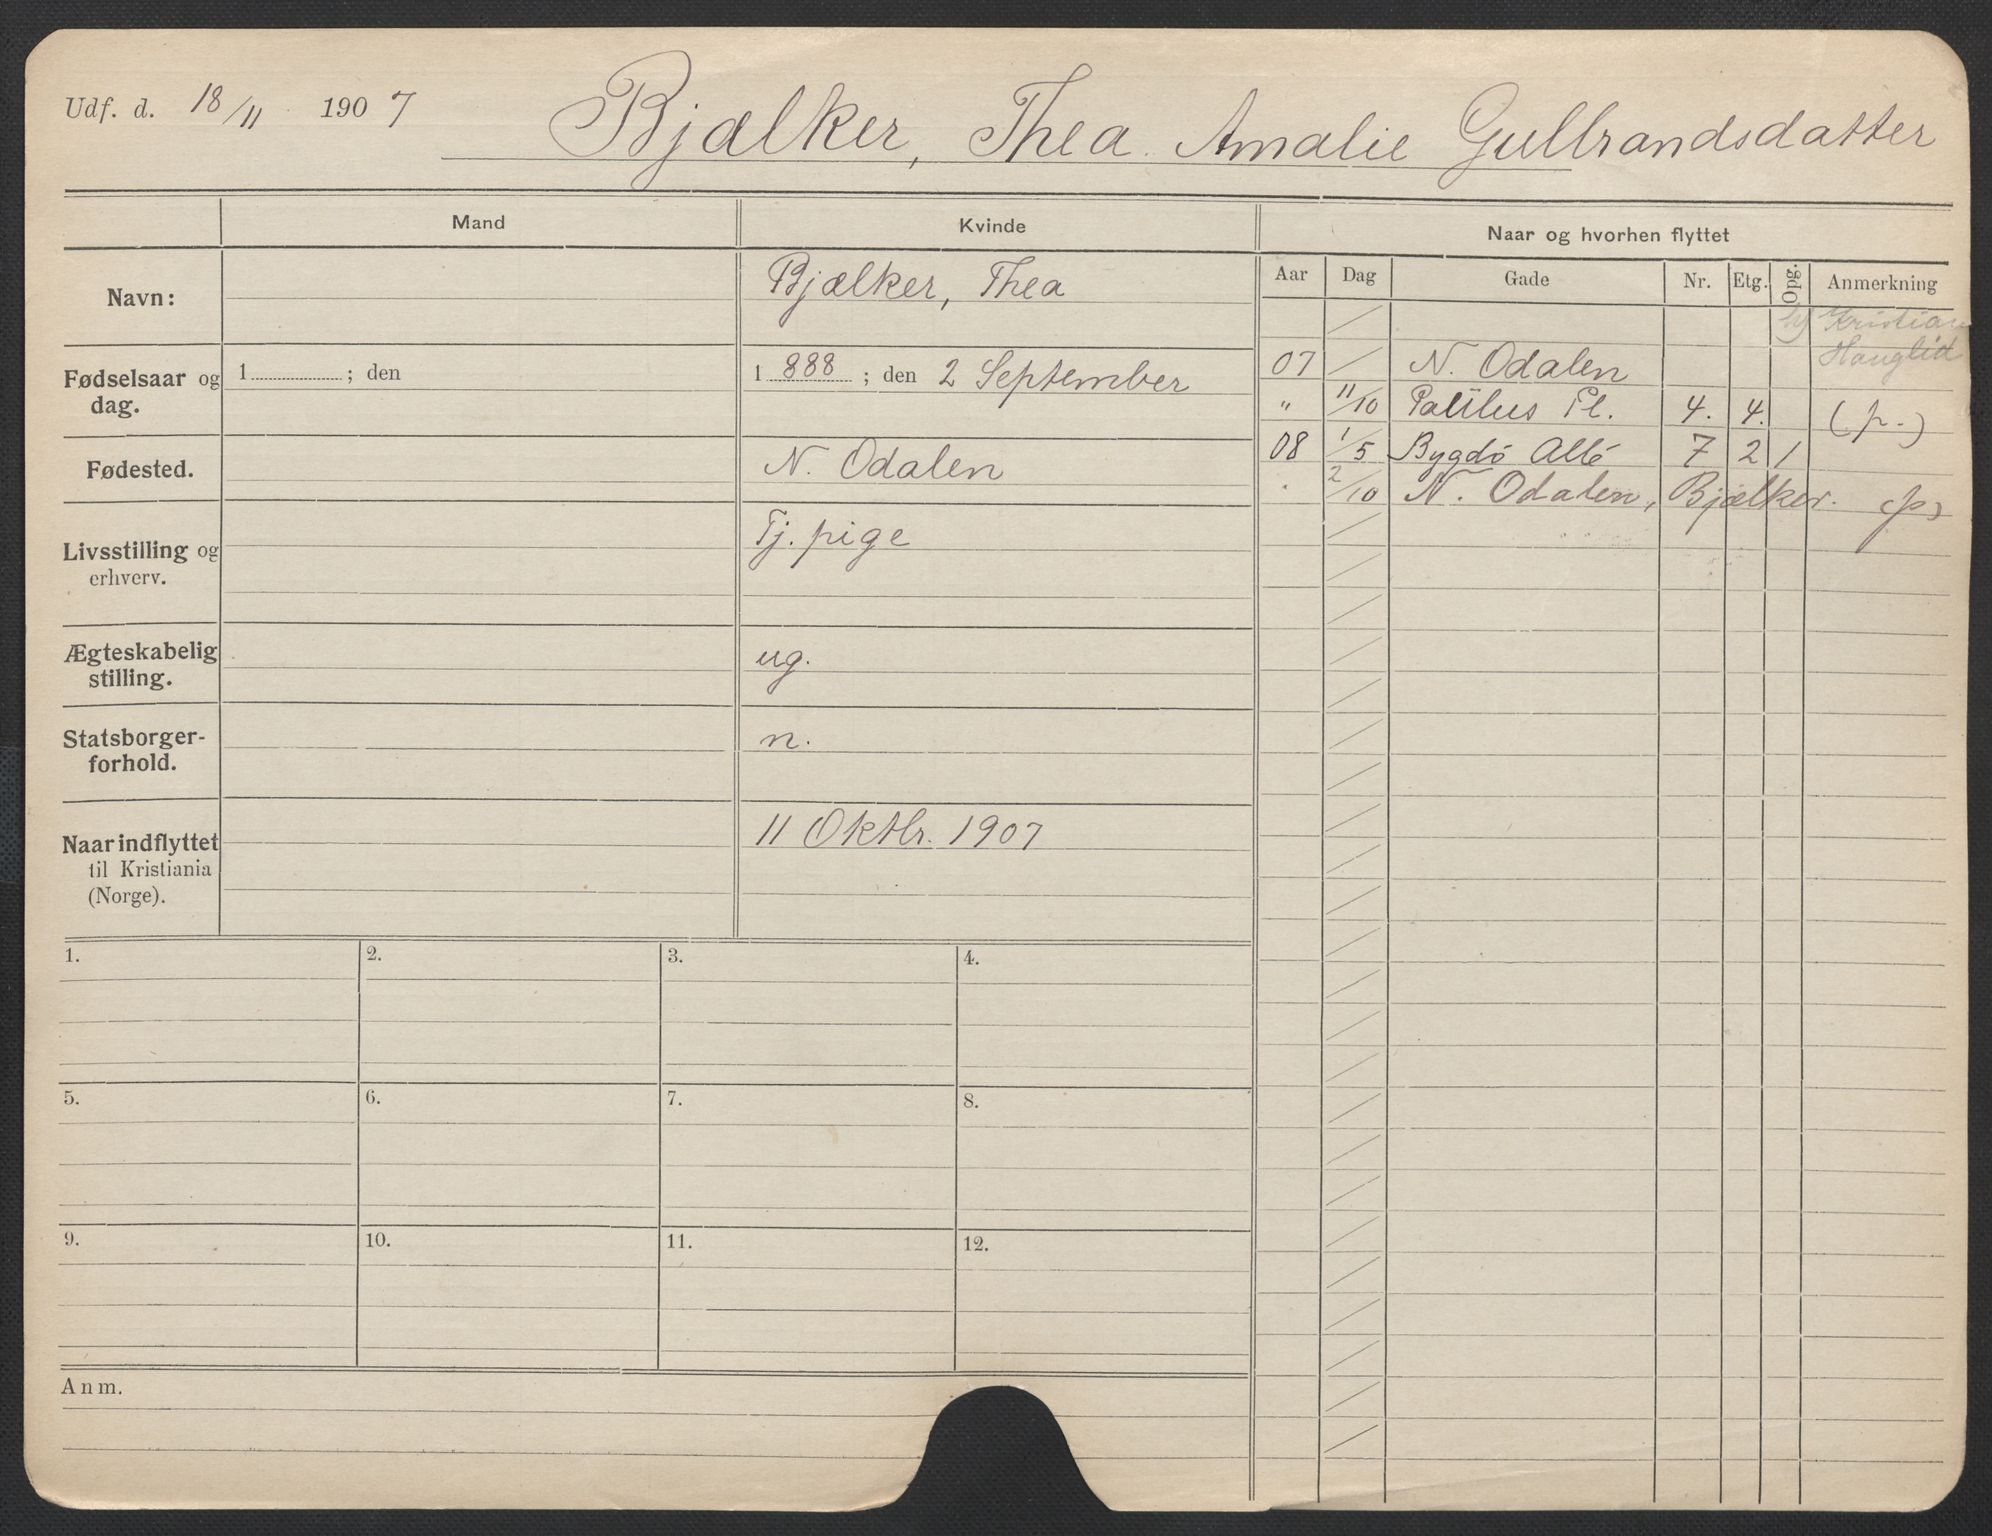 Udf. d. 18/11 1907 Bjælker, Thea Amalie Gulbrandsdatter
Mand Kvinde Naar og hvorhen flyttet
Aar Dag Gade Nr. Etg. Opg. Anmerkning
Navn: Bjælker, Thea
Kristian
Hauglid
Fødselsaar og dag. 1 ; den 1 888 ; den 2 September
07 / N. Odalen
" 11/10 Paulus Pl. 4. 4. (p.)
08 1/5 Bygdø Allé 7 2 1
" 2/10 N. Odalen, Bjælker. (p)
Fødested. N. Odalen
Livsstilling og erhverv. Tj. pige
Ægteskabelig stilling. ug.
Statsborger-
forhold. n.
Naar indflyttet
til Kristiania
(Norge). 11 Oktbr. 1907
1. 2. 3. 4.
5. 6. 7. 8.
9. 10. 11. 12.
Anm.